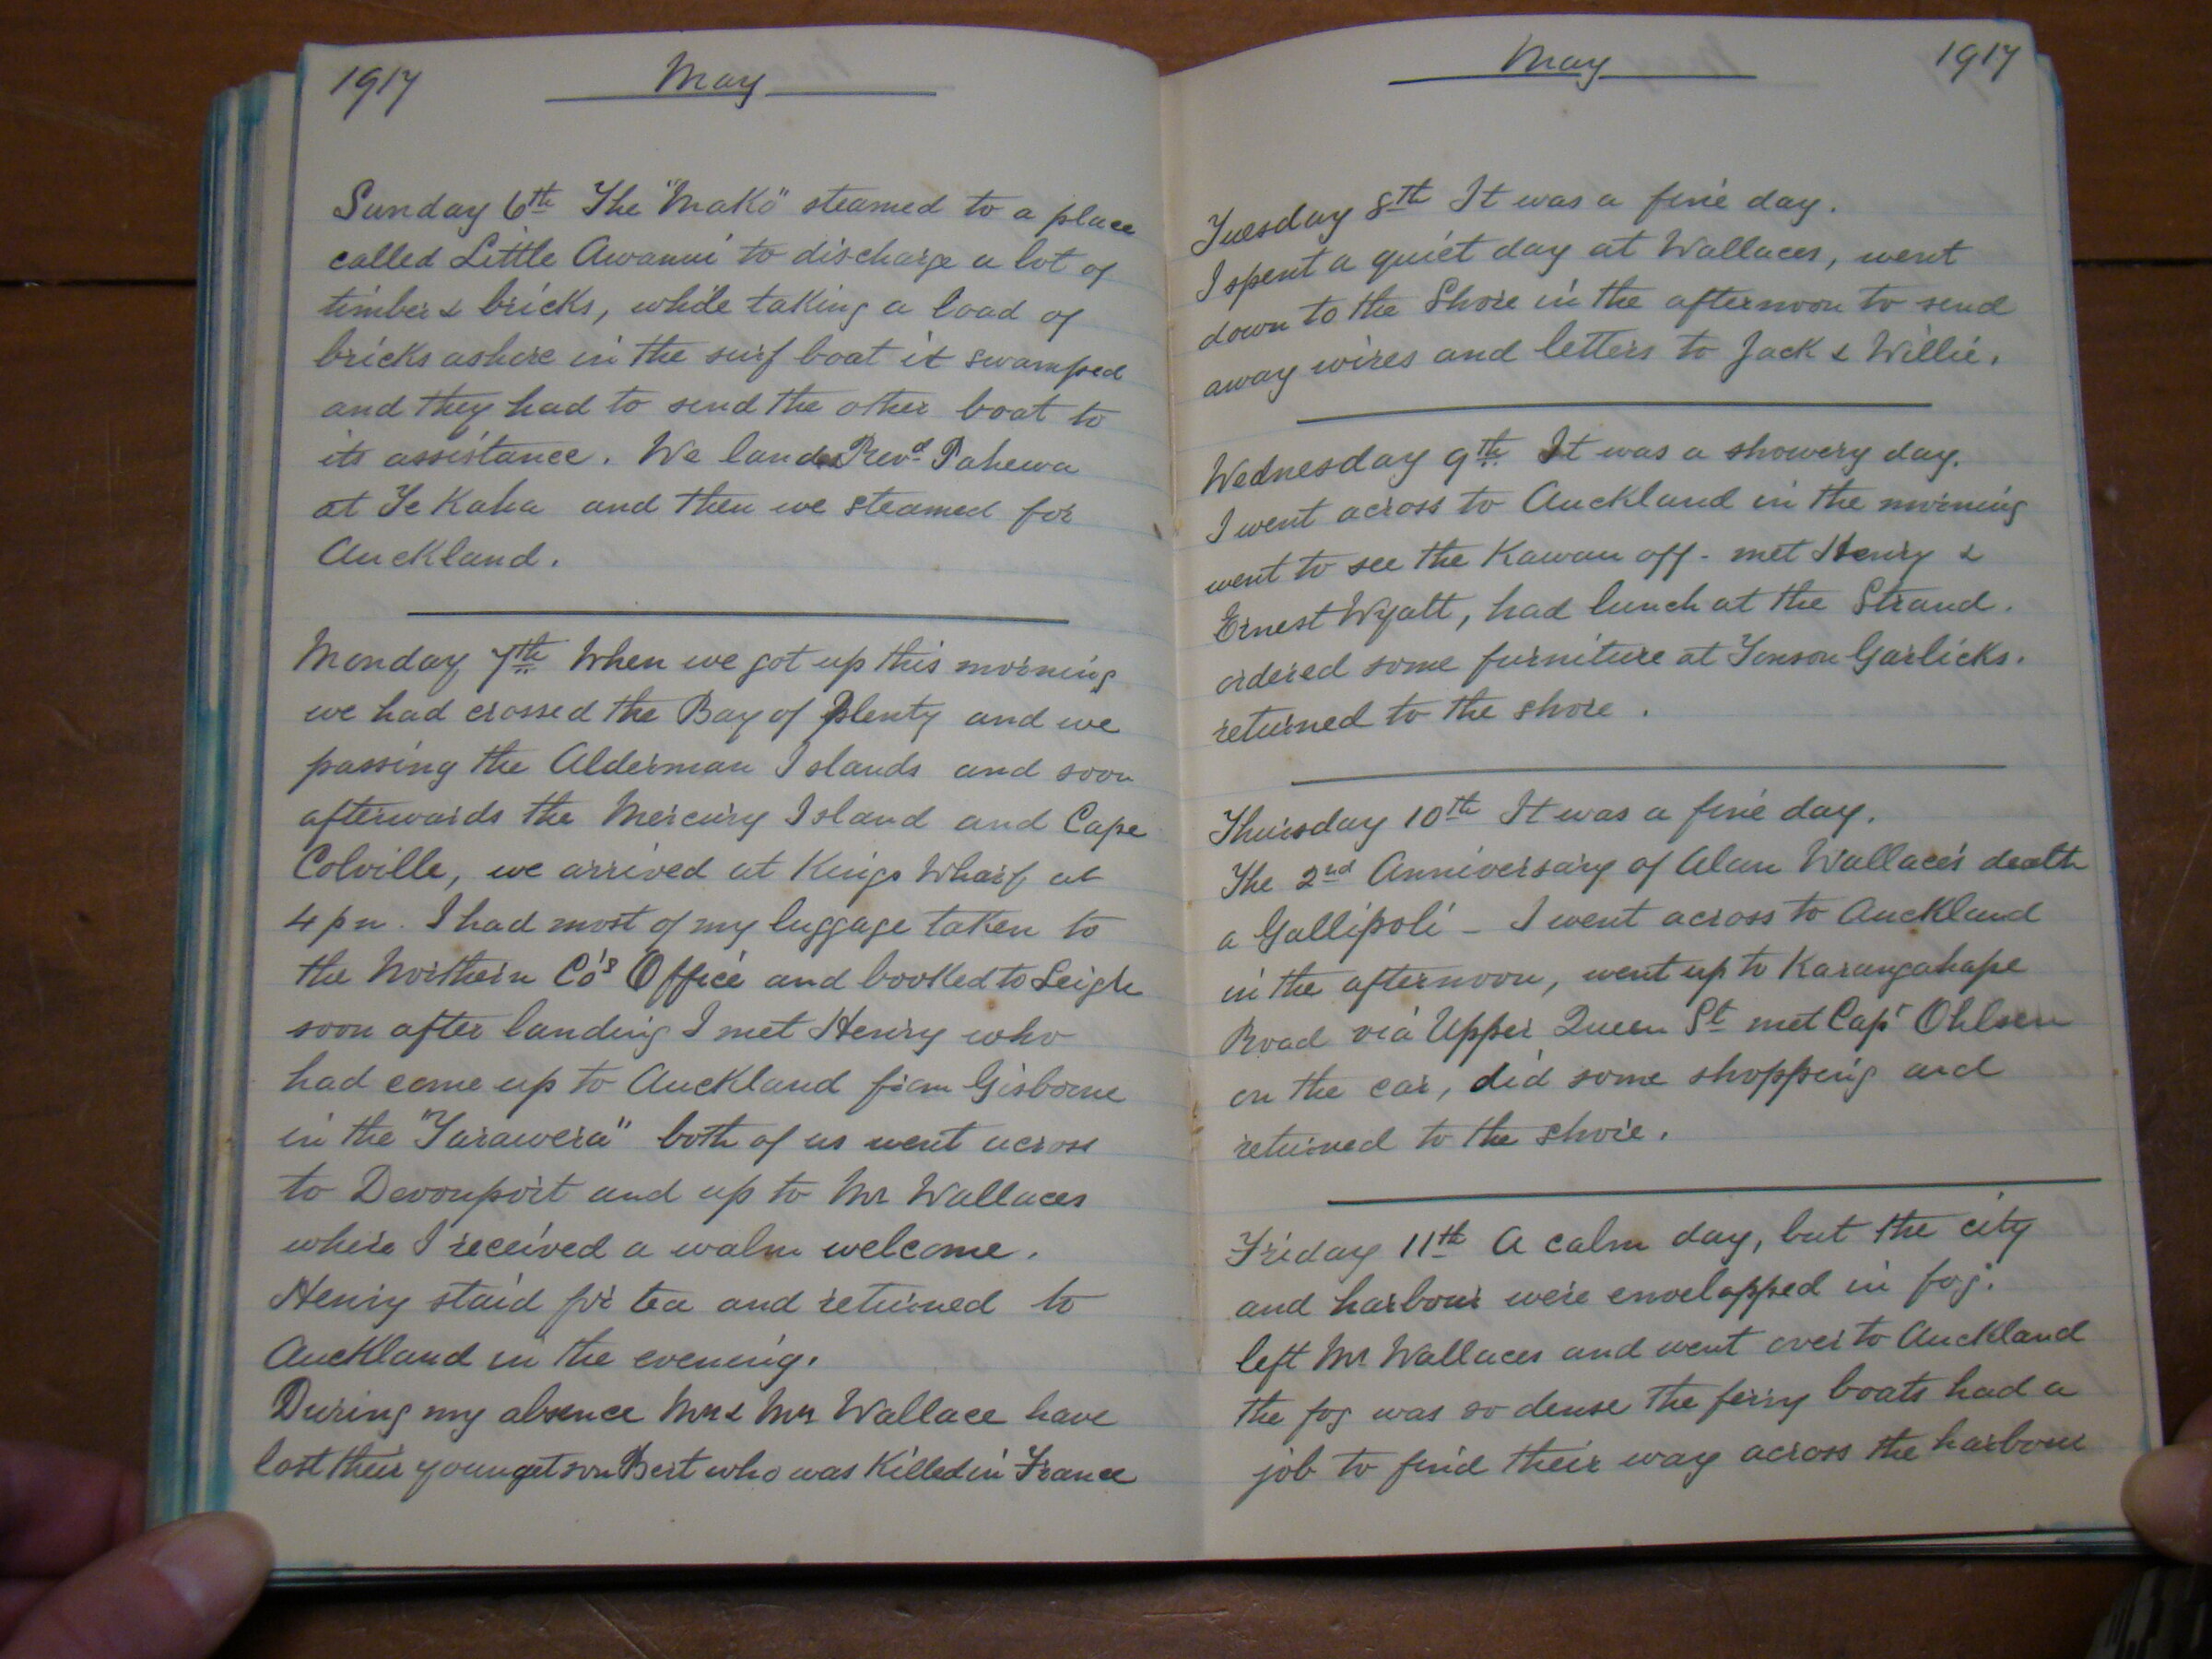 1917 May
Sunday 6th The "Mako" steamed to a place
called Little Awanui to discharge a lot of
timber & bricks, while taking a load of
bricks ashore in the surf boat it swamped
and they had to send the other boat to
its assistance. We landed Revd Pahewa
at Te Kaha and then we steamed for
Auckland.
Monday 7th When we got up this morning
we had crossed the Bay of Plenty and we
passing the Alderman Islands and soon
afterwards the Mercury Island and Cape
Colville, we arrived at Kings Wharf at
4 pm. I had most of my luggage taken to
the Northern Co's Office and booked to Leigh
soon after landing I met Henry who
had come up to Auckland from Gisborne
in the "Tarawera" both of us went across
to Devonport and up to Mr Wallaces
where I received a walm welcome.
Henry staid for tea and returned to
Auckland in the evening.
During my absence Mr & Mrs Wallace have
lost their younget son Bert who was Killed in France
May 1917
Tuesday 8th It was a fine day.
I spent a quiet day at Wallaces, went
down to the Shore in the afternoon to send
away wires and letters to Jack & Willie.
Wednesday 9th It was a showery day.
I went across to Auckland in the morning
went to see the Kawau off - met Henry &
Ernest Wyatt, had lunch at the Strand.
ordered some furniture at Tonson Garlicks.
returned to the shore.
Thursday 10th It was a fine day.
The 2nd Anniversary of Alan Wallace's death
a Gallipoli - I went across to Auckland
in the afternoon, went up to Karangahape
Road via Upper Queen St met Capt Ohlsen
on the car, did some shopping and
returned to the shore.
Friday 11th A calm day, but the city
and harbour were envelopped in fog.
left Mr Wallaces and went over to Auckland
the fog was so dense the ferry boats had a
job to find their way across the harbour